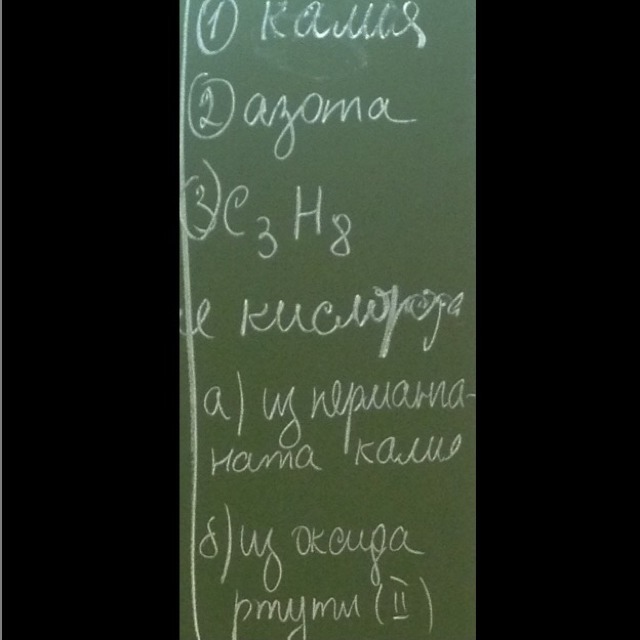 1) калия
2) азота
3) C3H8
е кислорода
а) из перманга-
ната калия
б) из оксида
ртути (II)